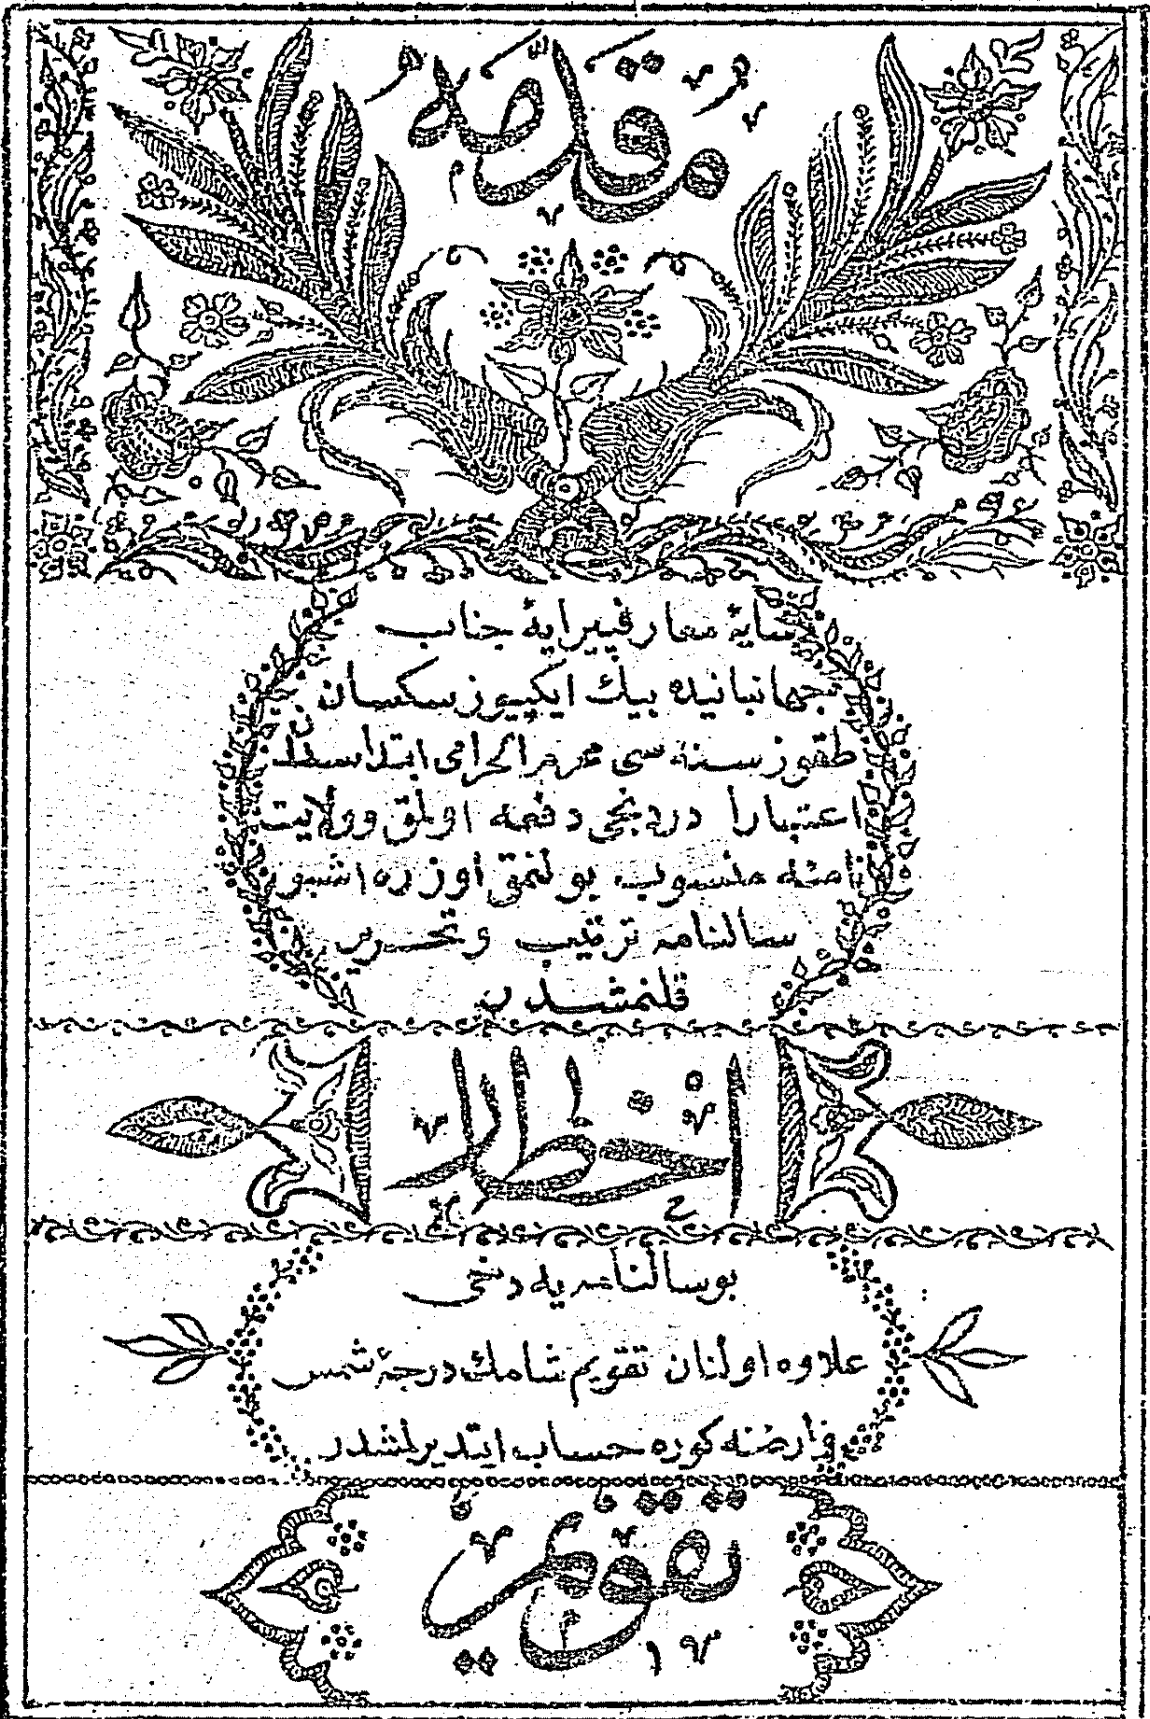 مقدمه
سایهٔ معارفپیرایهٔ جناب
جهانبانیده بیك ایكییوز سكسان
طقوز سنه سی محرم الحرامی ابتداسندن
اعتبارا دردنجی دفعه اولمق وولایت
نامنه منسوب بولنمق اوزره اشبو
سالنامه ترتیب وتحریر
قلنمشدر
اخطار
بو سالنامه یه دخی
علاوه اولنان تقویم شامك درجهٔ شمس
وارضنه كوره حساب ایتدیرلمشدر
تقویم